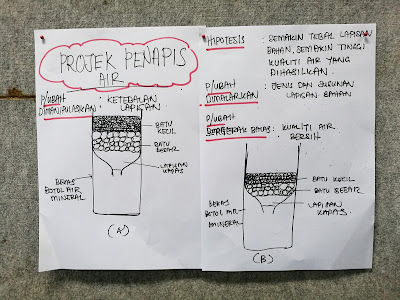 PROJEK PENAPIS
AIR
P/UBAH : KETEBALAN
DIMANIPULASIKAN LAPISAN
BATU
KECIL
BATU
BESAR
LAPISAN
KAPAS
BEKAS
BOTOL AIR
MINERAL
(A)
HIPOTESIS : SEMAKIN TEBAL LAPISAN
BAHAN, SEMAKIN TINGGI
KUALITI AIR YANG
DIHASILKAN.
P/UBAH : JENIS DAN SUSUNAN
DIMALARKAN LAPISAN BAHAN
P/UBAH
BERGERAK BALAS : KUALITI AIR
BERSIH
BATU KECIL
BATU BESAR
LAPISAN
KAPAS
BEKAS
BOTOL AIR
MINERAL
(B)